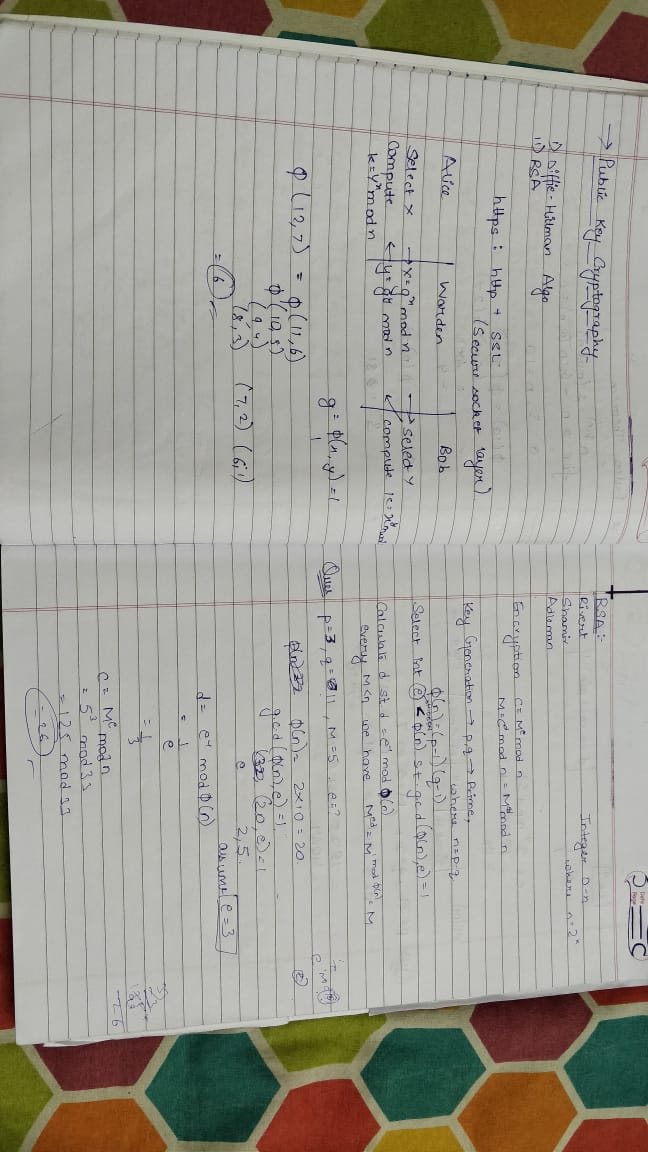 → Public Key Cryptography
i) Diffie-Hillman Algo
ii) RSA
https : http + SSL
(Secure socket layer)
Alice Warden Bob
Select x → X = g^x mod n → select y
Compute ← Y = g^y mod n ↙ compute
k = Y^x mod n
g = φ(n, y) = 1
φ (12,7) = φ (11,6)
φ (10,5)
(9,4)
(8,3) (7,2) (6,1)
= 6
RSA :-
Rivert Integer 0-n
Shamir where n = 2^k
Adleman
Encryption C = M^e mod n
M = C^d mod n = M^ed mod n
Key Generation → p,q → Prime,
where n = p.q
φ(n) = (p-1) (q-1)
Select int e < φ(n) st gcd (φ(n), e) = 1
Calculate d st d = e^-1 mod φ(n)
every M<n we have M^ed = M^1 mod φ(n) = M
Ques p=3, q=11, M=5 e=?
φ(n) = 2 × 10 = 20
gcd (φ(n), e) = 1
(20, e) = 1
e 2, 5.
assume e = 3
d = e^-1 mod φ(n)
= 1/e
= 1/3
C = M^e mod n
= 5^3 mod 33
= 125 mod 33
= 26